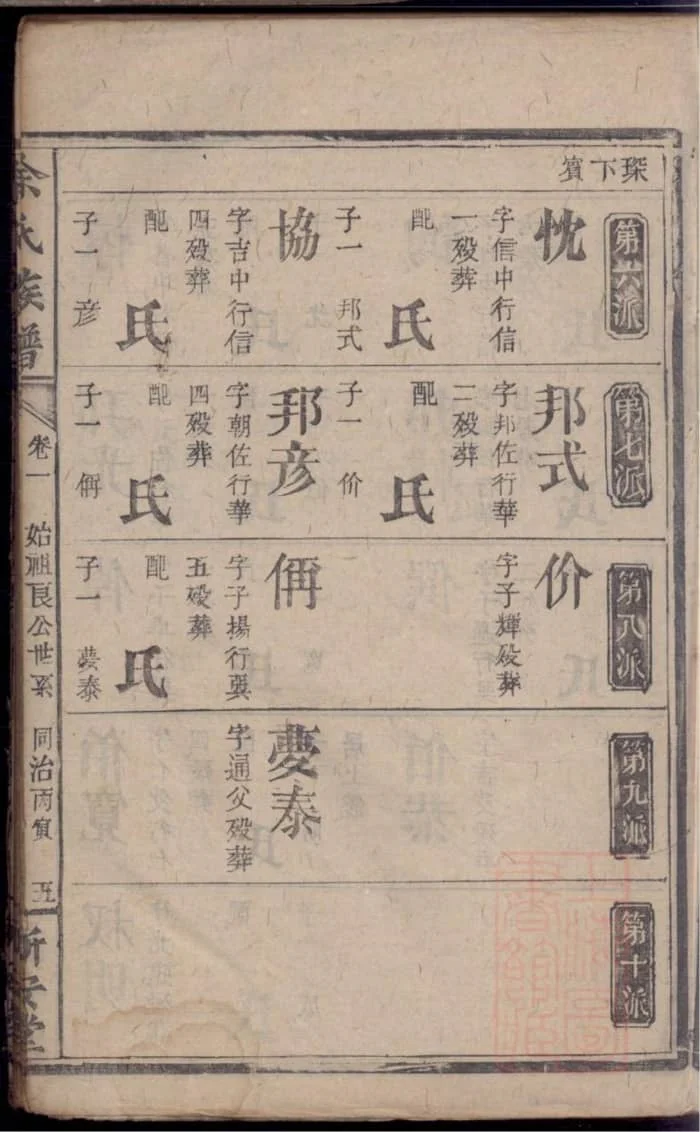 琛下賓
第六派
忱
字信中行信
一歿葬
配
氏
子一 邦式
協
字吉中行信
四歿葬
配
氏
子一 彦
第七派
邦式
字邦佐行華
二歿葬
配
氏
子一 价
邦彦
字朝佐行華
四歿葬
配
氏
子一 侢
第八派
价
字子輝歿葬
侢
字子揚行
五歿葬
配
氏
子一 夢泰
第九派
夢泰
字通父歿葬
第十派
余氏族譜
卷一
始祖良公世系
同治丙寅
五
新安堂